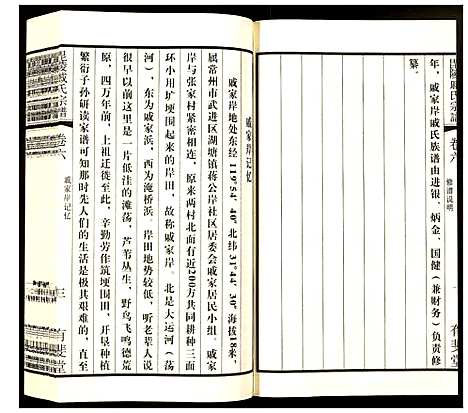 毘陵戚氏宗譜
卷六
修谱说明
有斐堂
年，戚家岸戚氏族谱由进银、炳金、国健（兼财务）负责修
纂。
戚家岸记忆
戚家岸地处东经119°54′40″北纬31°44′30″海拔18米，
属常州市武进区湖塘镇蒋公岸社区居委会戚家居民小组。戚家
岸与张家村紧密相连，原来两村北面有近200方共同耕种三面
环小用圹埂围起来的岸田，故称戚家岸。北是大运河（荡
河），东为戚家浜，西为淹桥浜。岸田地势较低，听老辈人说
很早以前这里是一片低洼的滩荡，芦苇丛生，野鸟飞鸣德荒
原，四万年前，上祖迁徙至此，辛勤劳作筑埂围田，开垦
繁衍子孙研读家谱可知那时先人们的生活是极其艰难的，直至
毘陵戚氏宗譜
卷六
戚家岸记忆
三
有斐堂